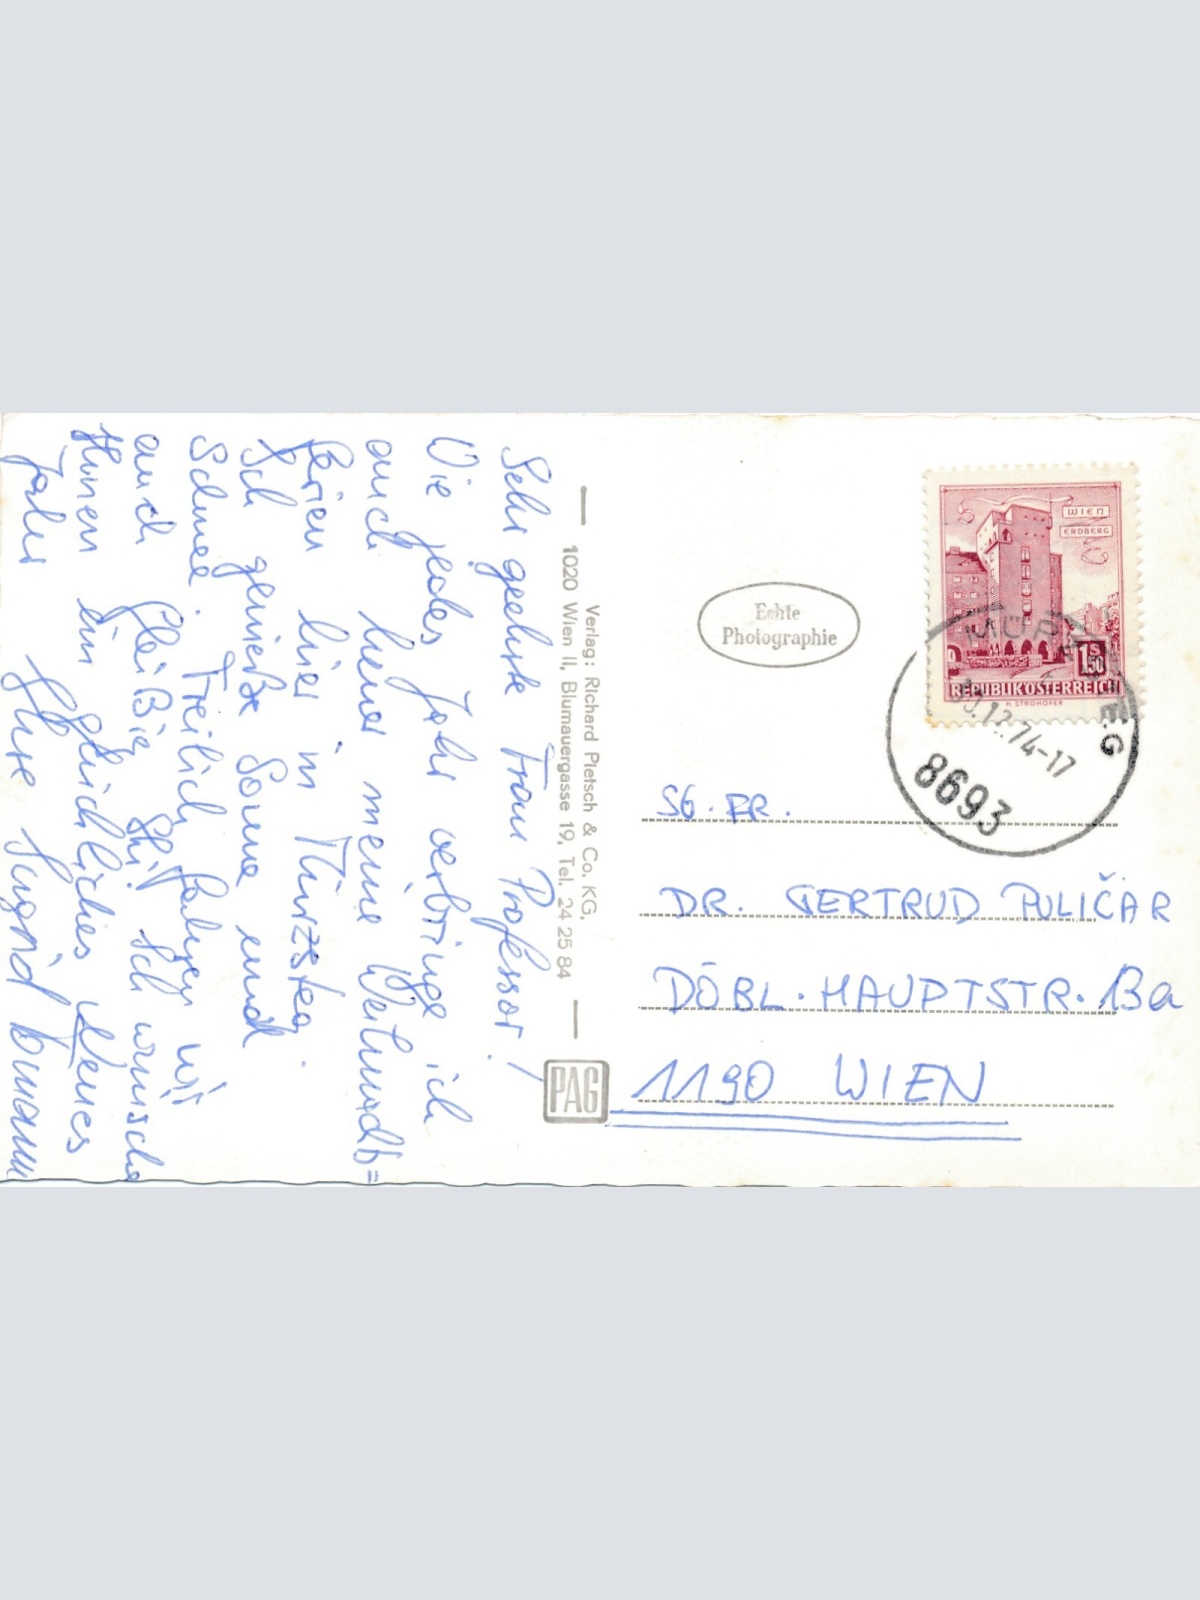 Sehr geehrte Frau Professor!
Wie jedes Jahr verbringe ich
auch heuer meine Weihnachts=
ferien hier in Mürzsteg.
Ich genieße Sonne und
Schnee. Freilich fahren wir
auch fleißig Ski. Ich wünsche
Ihnen ein glückliches Neues
Jahr
Ihre Sigrid
Verlag: Richard Pietsch & Co. KG.
1020 Wien II, Blumauergasse 19, Tel. 24 25 84
PAG
Echte
Photographie
WIEN
ERDBERG
1.50
S
REPUBLIK ÖSTERREICH
H. STROHOFER
MÜRZSTEG
30.12.74-17
8693
SG. FR.
DR. GERTRUD PULIČAR
DÖBL. HAUPTSTR. 13a
1190 WIEN